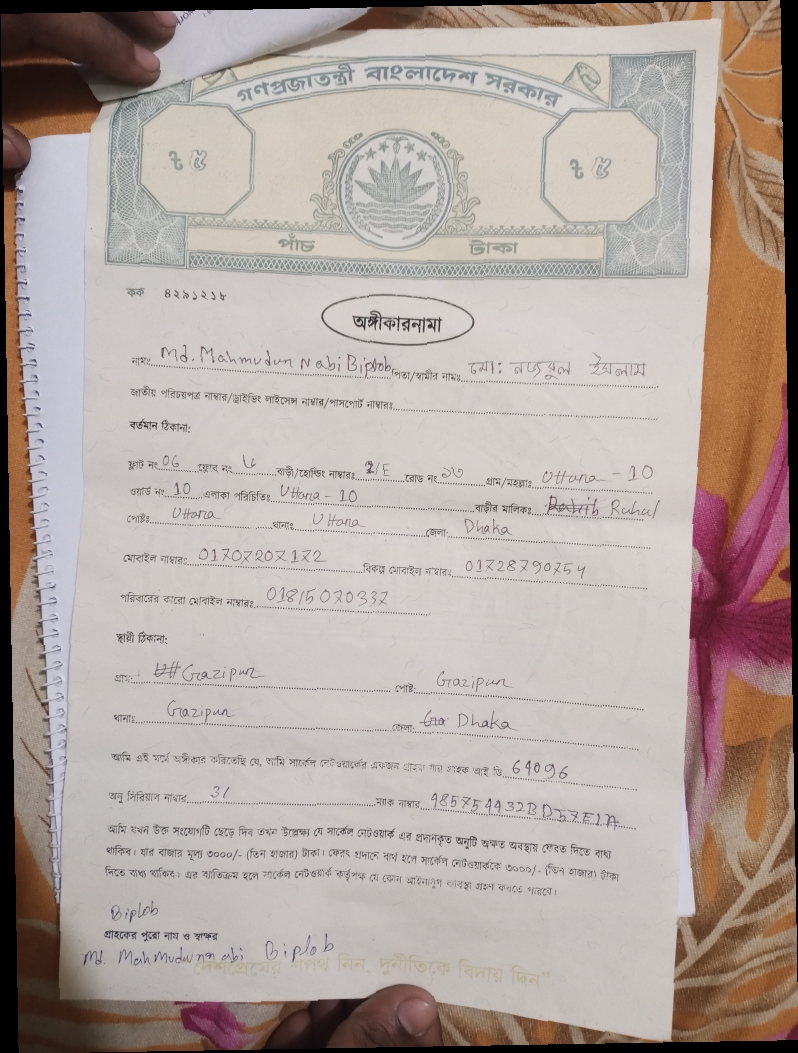 গণপ্রজাতন্ত্রী বাংলাদেশ সরকার
৳ ৫ ৳ ৫
পাঁচ টাকা
কক ৪২৯১২১৮
অঙ্গীকারনামা
নামঃ Md. Mahmudun Nabi Biplob পিতা/স্বামীর নামঃ মো: নজরুল ইসলাম
জাতীয় পরিচয়পত্র নাম্বার/ড্রাইভিং লাইসেন্স নাম্বার/পাসপোর্ট নাম্বারঃ
বর্তমান ঠিকানা:
ফ্লাট নং 06 ফ্লোর নং ৬ বাড়ী/হোল্ডিং নাম্বারঃ 2/E রোড নং ১৩ গ্রাম/মহল্লাঃ Uttara - 10
ওয়ার্ড নং 10 এলাকা পরিচিতিঃ Uttara - 10 বাড়ীর মালিকঃ Ruhul
পোষ্টঃ Uttara থানাঃ Uttara জেলা: Dhaka
মোবাইল নাম্বারঃ 01707207172 বিকল্প মোবাইল নাম্বারঃ 01728790754
পরিবারের কারো মোবাইল নাম্বারঃ 01815070337
স্থায়ী ঠিকানা:
গ্রাম: Gazipur পোষ্ট: Gazipur
থানাঃ Gazipur জেলা: Dhaka
আমি এই মর্মে অঙ্গীকার করিতেছি যে, আমি সার্কেল নেটওয়ার্কের একজন গ্রাহক যার গ্রাহক আই ডি 64096
অনু সিরিয়াল নাম্বার 31 ম্যাক নাম্বার 485754432BD57E1A
আমি যখন উক্ত সংযোগটি ছেড়ে দিব তখন উল্লেক্ষ্য যে সার্কেল নেটওয়ার্ক এর প্রদানকৃত অনুটি অক্ষত অবস্থায় ফেরত দিতে বাধ্য
থাকিব। যার বাজার মূল্য ৩০০০/- (তিন হাজার) টাকা। ফেরৎ প্রদানে ব্যর্থ হলে সার্কেল নেটওয়ার্ককে ৩০০০/- (তিন হাজার) টাকা
দিতে বাধ্য থাকিব। এর ব্যতিক্রম হলে সার্কেল নেটওয়ার্ক কর্তৃপক্ষ যে কোন আইনানুগ ব্যবস্থা গ্রহণ করতে পারবে।
Biplob
গ্রাহকের পুরো নাম ও স্বাক্ষর
Md. Mahmudun nabi Biplob
"দেশপ্রেমের শপথ নিন, দুর্নীতিকে বিদায় দিন"